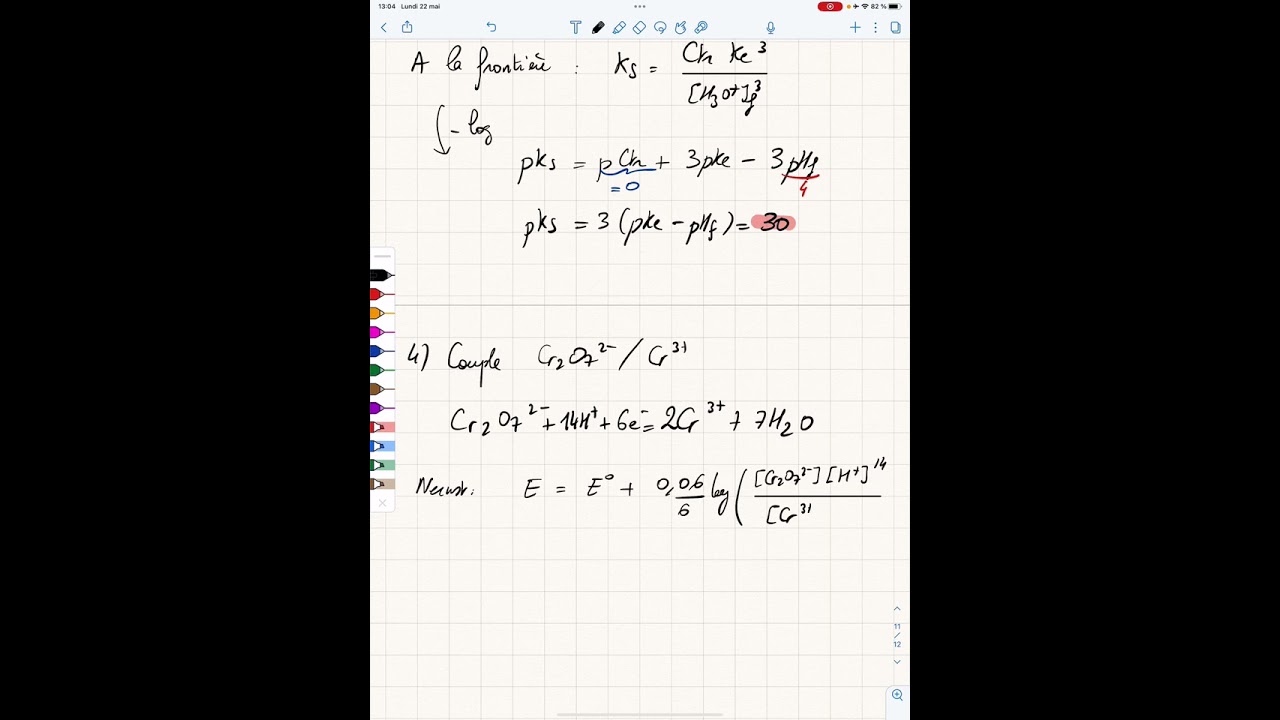 13:04 Lundi 22 mai 82 %
A la frontière : Ks = Ctr Ke³ / [H₃O⁺]f³
- log
pKs = pCtr + 3pKe - 3pHf
= 0 4
pKs = 3 (pKe - pHf) = 30
4) Couple Cr₂O₇²⁻ / Cr³⁺
Cr₂O₇²⁻ + 14H⁺ + 6e⁻ = 2Cr³⁺ + 7H₂O
Nernst : E = E° + 0,06/6 log ( [Cr₂O₇²⁻][H⁺]¹⁴ / [Cr³⁺
11
/
12